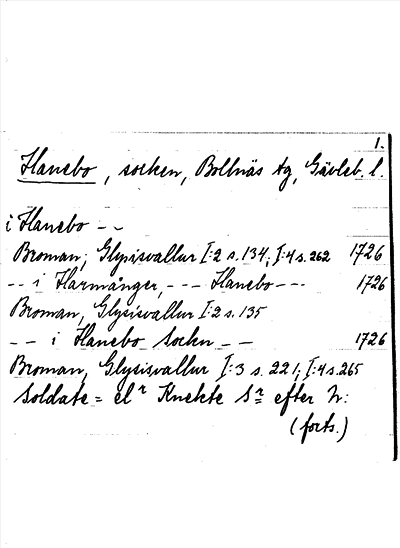 1.
Hanebo, socken, Bollnäs tg, Gävleb. l.
i Hanebo - -
Broman, Glysisvallur I:2 s. 134, I:4 s. 262 1726
- - i Harmånger, - - - Hanebo - - - 1726
Broman, Glysisvallur I:2 s. 135
- - i Hanebo Sockn - - 1726
Broman, Glysisvallur I:3 s. 221; I:4 s. 265
Soldate= elr Knekte Sr efter h:
(forts.)